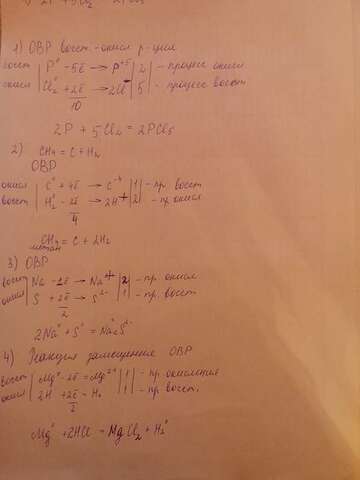 1) ОВР восст.-окисл р-ция
восст | P⁰ - 5ē → P⁺⁵ | 2 | - процесс окисл
окисл | Cl₂⁰ + 2ē → 2Cl⁻ | 5 | - процесс восст
10
2P + 5Cl₂ = 2PCl₅
2) CH₄ = C + H₂
ОВР
окисл | C⁰ + 4ē → C⁻⁴ | 1 | - пр восст
восст | H₂⁰ - 2ē → 2H⁺ | 2 | - пр окисл
4
CH₄ = C + 2H₂
метан
3) ОВР
восст | Na - 1ē → Na⁺ | 2 | - пр. окисл
окисл | S + 2ē → S²⁻ | 1 | - пр. восст
2
2Na⁰ + S⁰ = Na₂S²⁻
4) Реакция замещение ОВР
восст | Mg⁰ - 2ē = Mg²⁺ | 1 | - пр окисления
окисл | 2H + 2ē - H₂ | 1 | - пр восст.
2
Mg⁰ + 2HCl = MgCl₂ + H₂⁰